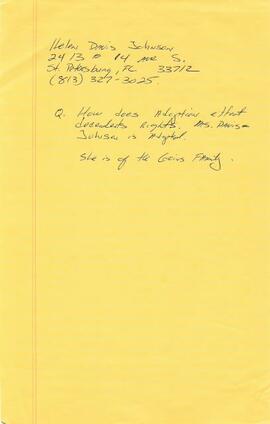 Helen Davis Johnson
2413 14 Ave S.
St. Petersburg, FL 33712
(813) 327-3025
Q. How does Adoption effect
decendents Rights. Ms. Davis-
Johnson is Adopted.
She is of the Family.